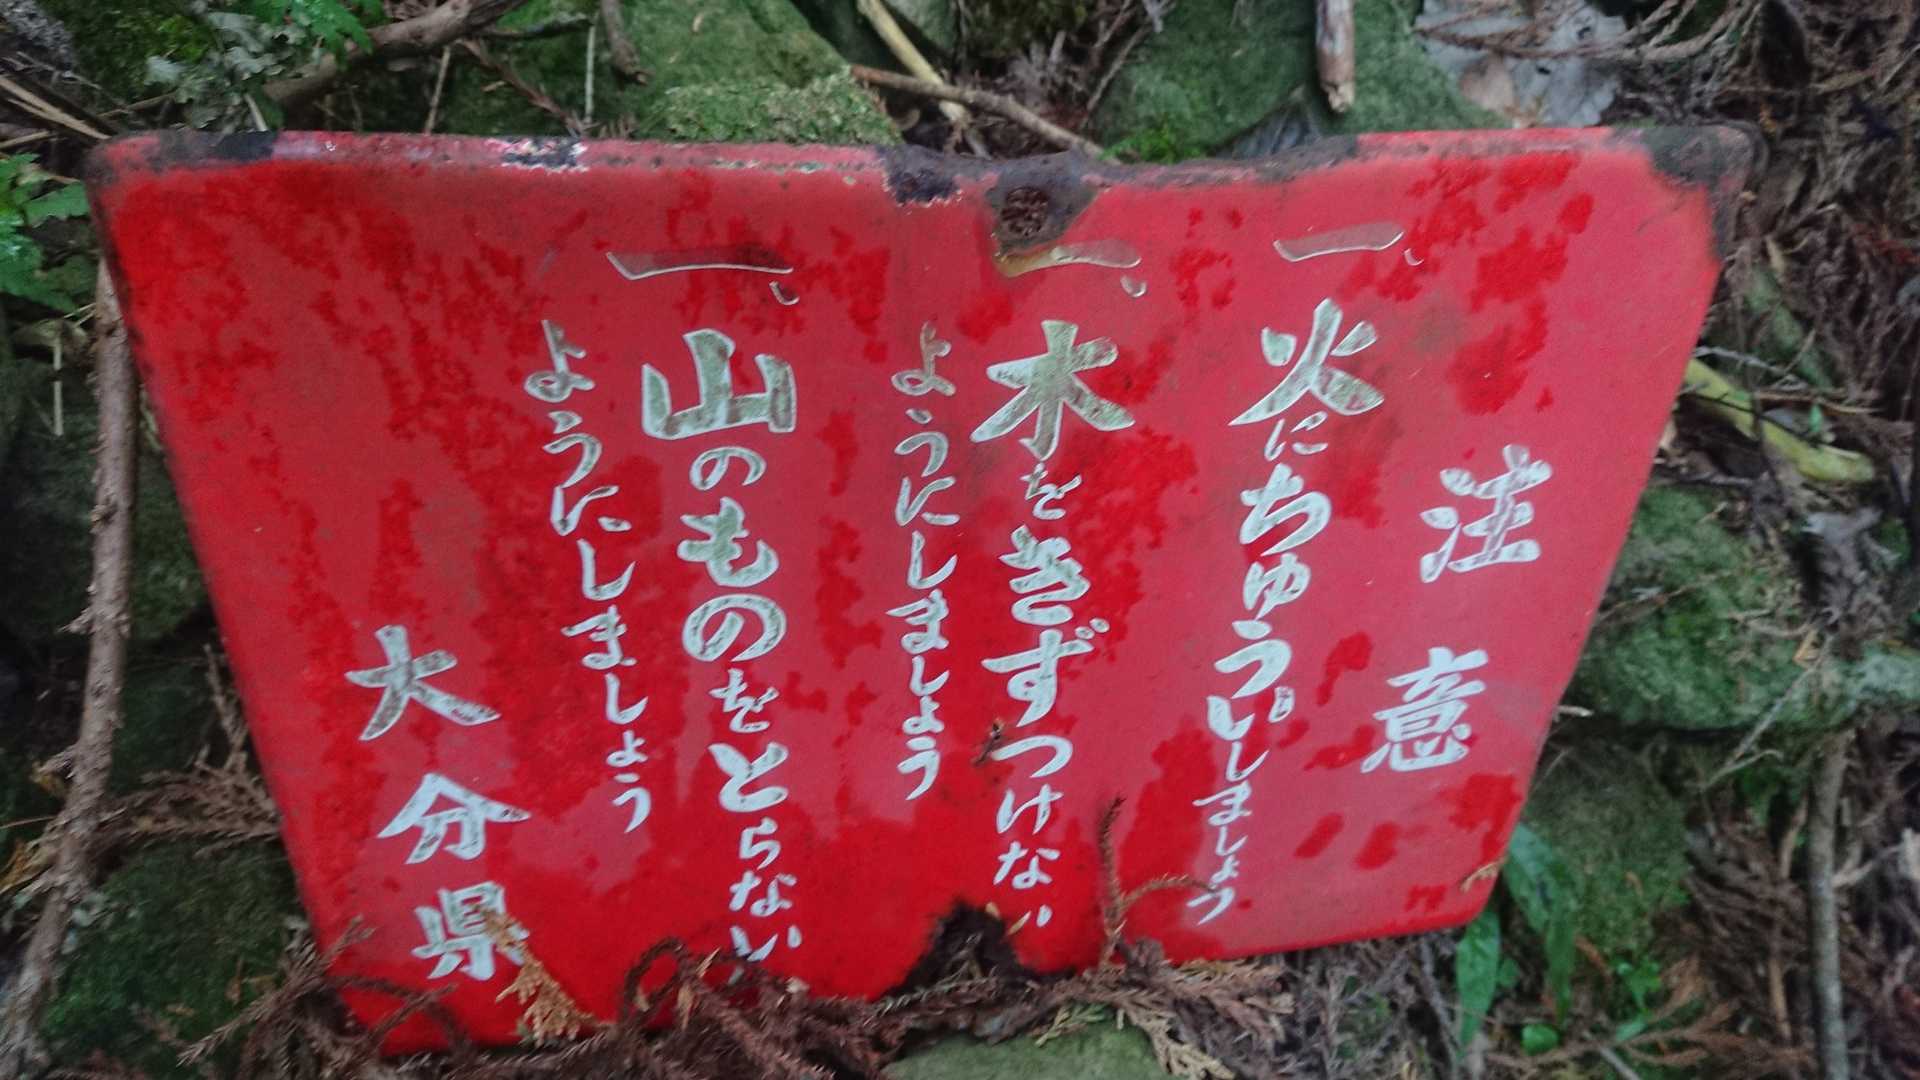 注意
一、火にちゅういしましょう
一、木をきずつけない
ようにしましょう
一、山のものをとらない
ようにしましょう
大分県